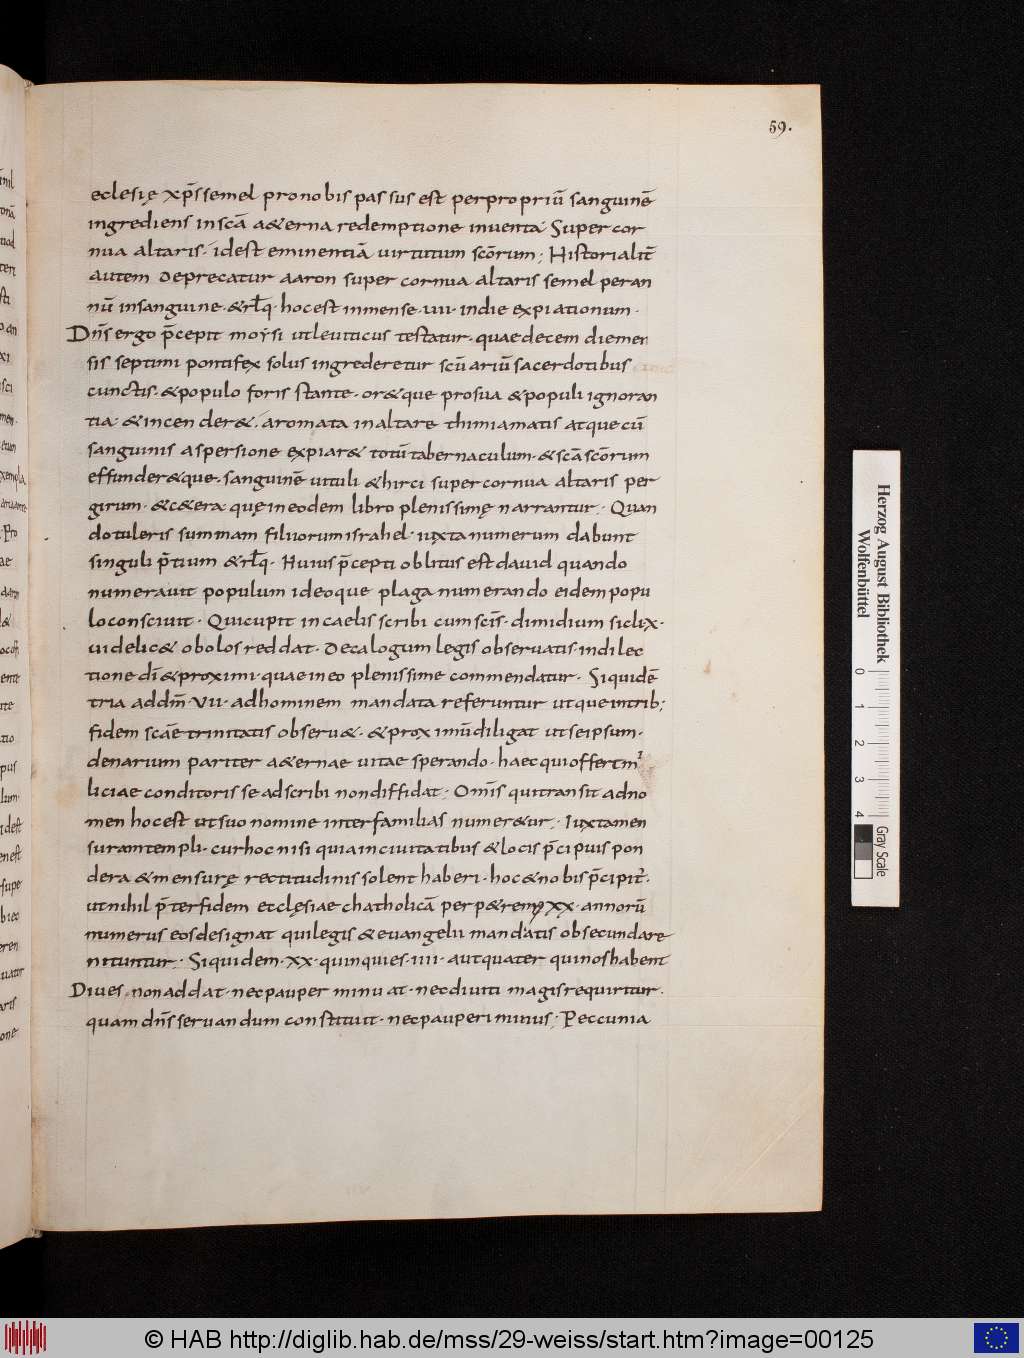 59.
eclesię xp̄s semel pro nobis passus est per propriū sanguinē
ingrediens in scā a&erna redemptione inventa Super cor
nua altaris · id est eminentiā virtutum scōrum ; Historialit̄
autem deprecatur aaron super cornua altaris semel per an
nū in sanguine · & rƚq · hoc est in mense · vii · in die expiationum ·
Dn̄s ergo p̄cepit moysi ut leviticus testatur · quae decem die men
sis septimi pontifex solus ingrederetur scū ariū sacerdotibus
cunctis · & populo foris stante · or&que pro sua & populi ignoran
tia · & incender& · aromata in altare thimiamatis atque cū
sanguinis aspersione expiar& totū tabernaculum · & scā scōrum
effunder&que · sanguinē vituli & hirci super cornua altaris per
girum · & c&era quę in eodem libro plenissimę narrantur · Quan
do tuleris summam filiorum israhel · iuxta numerum dabunt
singuli p̄tium & rƚq · Huius p̄cepti oblitus est david quando
numeravit populum ideoque plaga numerando eidem popu
lo consciuit · Qui cupit in caelis scribi cum scīs · dimidium siclix ·
videlic& obolos reddat · decalogum legis observatis · in dilec
tione dī & proximi · quae in eo plenissime commendatur · Siquidē
tria ad dm̄ · VII · ad hominem mandata referuntur ut que in trib;
fidem scāe trinitatis observ& · & proximū diligat ut se ipsum ·
denarium pariter a&ernae vitae sperando · haec qui offert mi
liciae conditoris se adscribi non diffidat · Om̄is qui transit ad no
men hoc est ut suo nomine inter familias numer&ur · Iuxta men
suram templi · cur hoc nisi quia in civitatibus & locis p̄cipuis pon
dera & mensurę rectitudinis solent haberi · hoc & nobis p̄cipit ·
ut nihil p̄ter fidem ecclęsiae chatholicā per p&rem9 XX · annorū
numerus eos designat qui legis & evangelii mandatis obsecundare
nituntur · Siquidem · XX · quinquies · IIII · aut quater quinos habent
Dives · non addat · nec pauper minuat · nec diviti magis requiritur ·
quam dn̄s servandum constituit · nec pauperi minus · Peccunia
Herzog August Bibliothek
Wolfenbüttel
0 1 2 3 4
Gray Scale
© HAB http://diglib.hab.de/mss/29-weiss/start.htm?image=00125